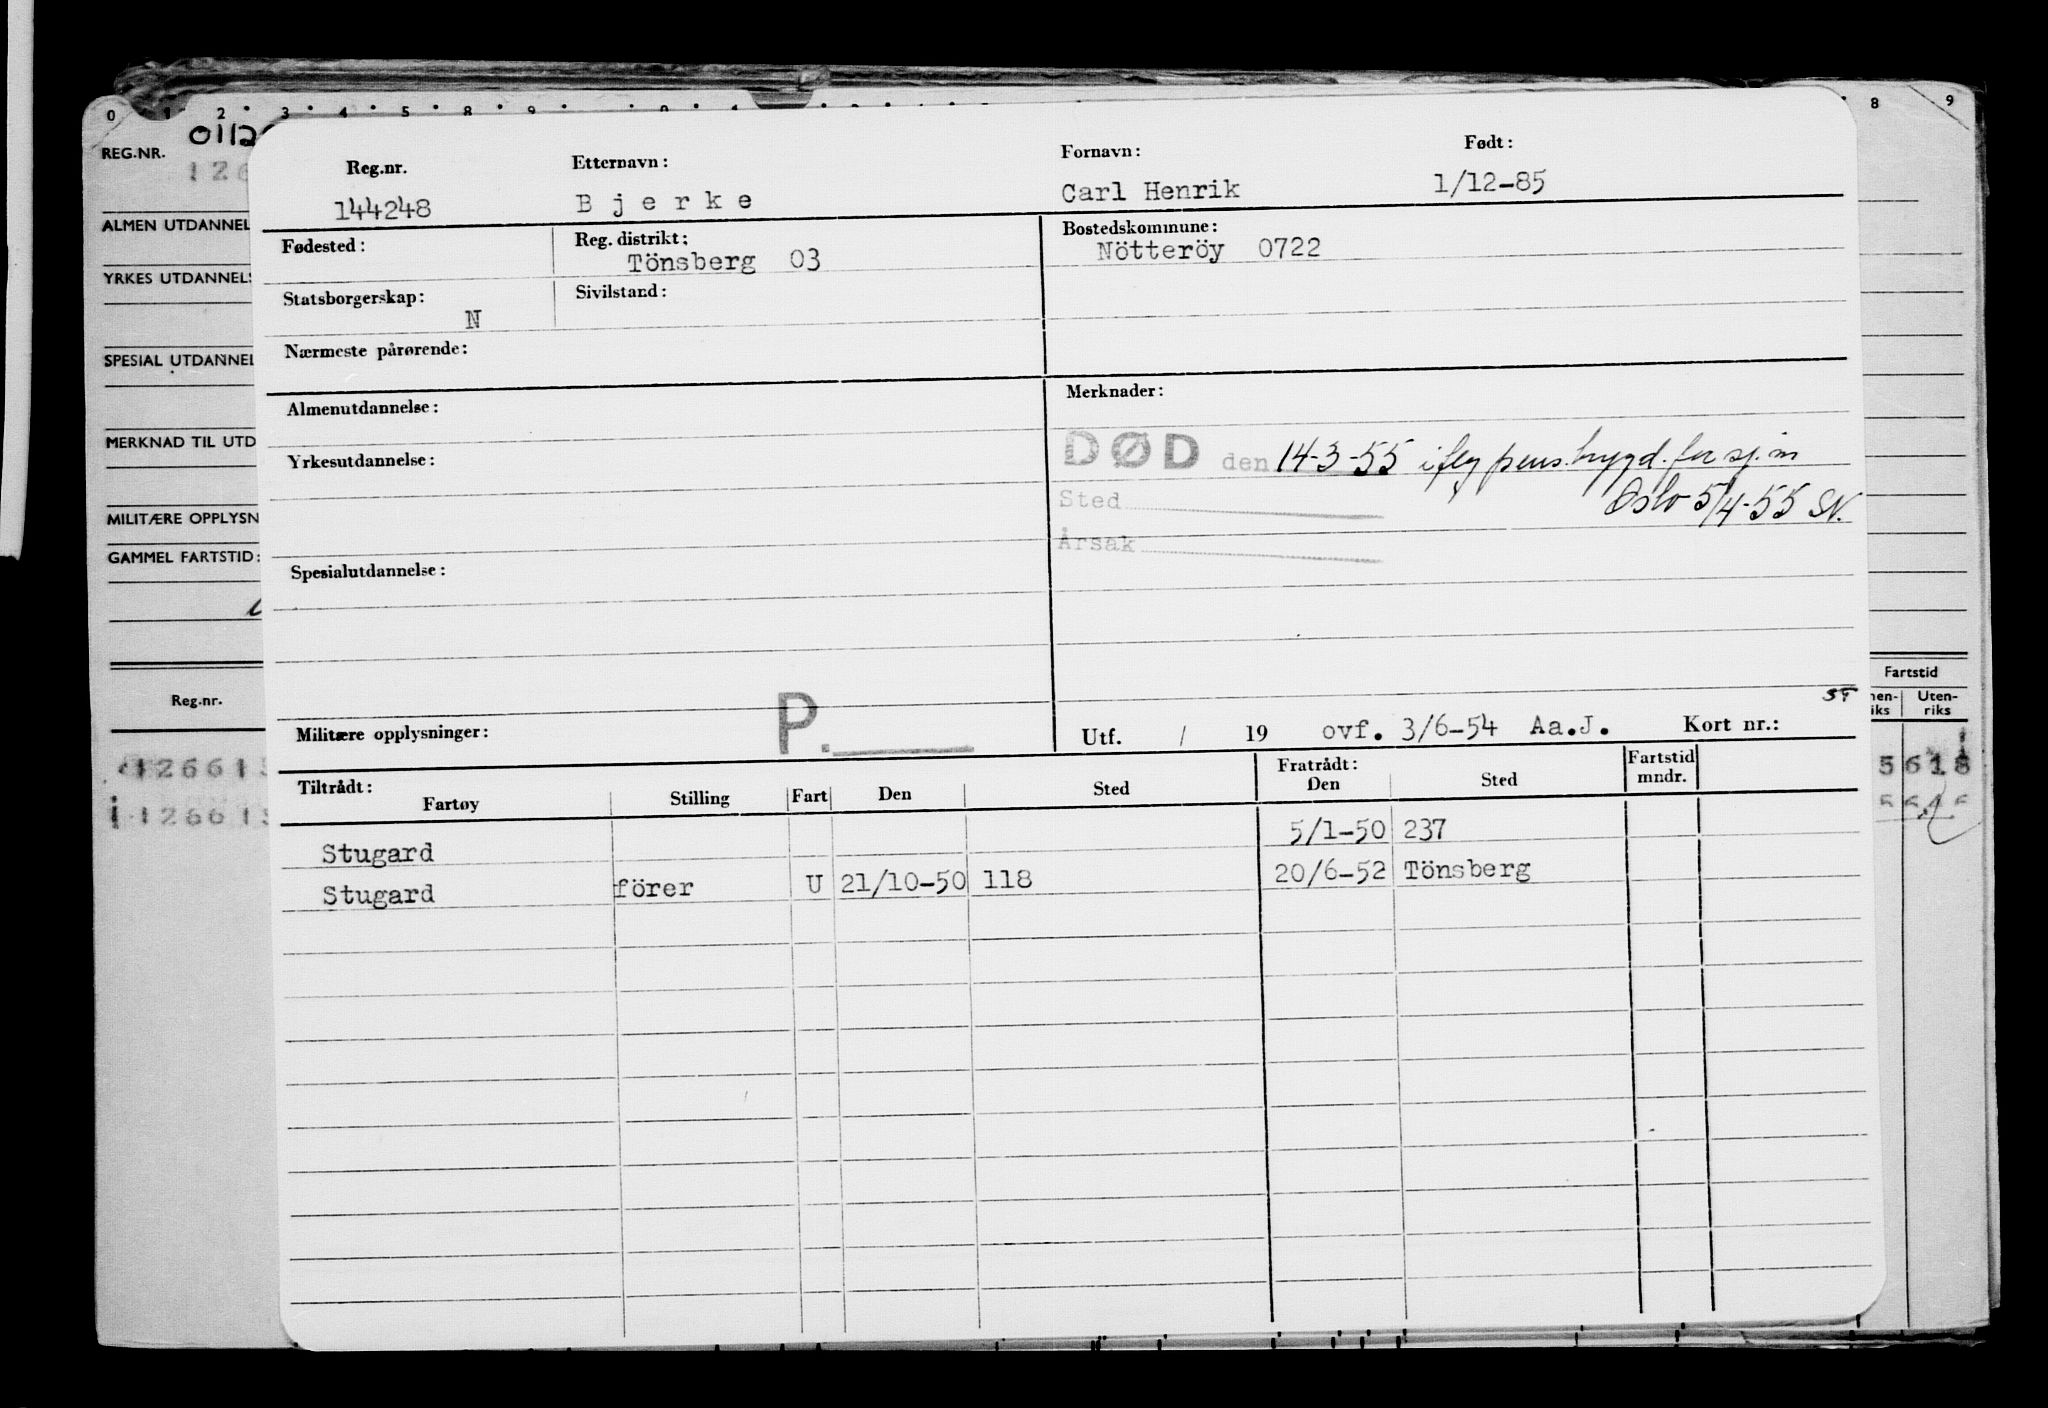 0 1 2 3 4 5 8 9 8 9
REG.NR. 0112
126
ALMEN UTDANNEL
YRKES UTDANNELS
SPESIAL UTDANNEL
MERKNAD TIL UTD
MILITÆRE OPPLYSN
GAMMEL FARTSTID:
Reg.nr.
126615
126615
Reg.nr. Etternavn: Fornavn: Født:
144248 B j e r k e Carl Henrik 1/12-85
Fødested: Reg. distrikt: Bostedskommune:
Tönsberg 03 Nötteröy 0722
Statsborgerskap: Sivilstand:
N
Nærmeste pårørende:
Almenutdannelse: Merknader:
Yrkesutdannelse: DØD den 14-3-55 ifлg pens.trygd. for sj.m
Sted Oslo 5/4-55 SN.
Årsak
Spesialutdannelse:
Militære opplysninger: P. Utf. / 19 ovf. 3/6-54 Aa.J. Kort nr.:
Tiltrådt: Fratrådt: Fartstid
Fartøy Stilling Fart Den Sted Den Sted mndr.
Stugard 5/1-50 237
Stugard förer U 21/10-50 118 20/6-52 Tönsberg
Fartstid
nen- Uten-
iks riks
5 618